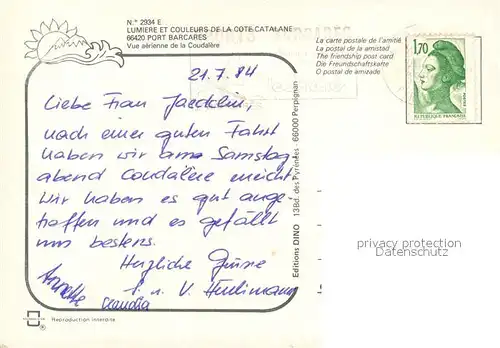 N.° 2934 E
LUMIERE ET COULEURS DE LA COTE CATALANE
66420 PORT BARCARES
Vue aérienne de la Coudalère
La carte postale de l'amitié
La postal de la amistad
The friendship post card
Die Freundschaftskarte
O postal de amizade
1,70
REPUBLIQUE FRANÇAISE
21.7.84
Liebe Frau
nach einer guten Fahrt
haben wir am Samstag
abend Coudalère erreicht
Wir haben es gut ange-
troffen und es gefällt
uns bestens.
Herzliche Grüsse
Annette
Claudia
u. V. Hürlimann
Editions DINO - 13Bd. des Pyrénées - 66000 Perpignan
Reproduction interdite
privacy protection
Datenschutz